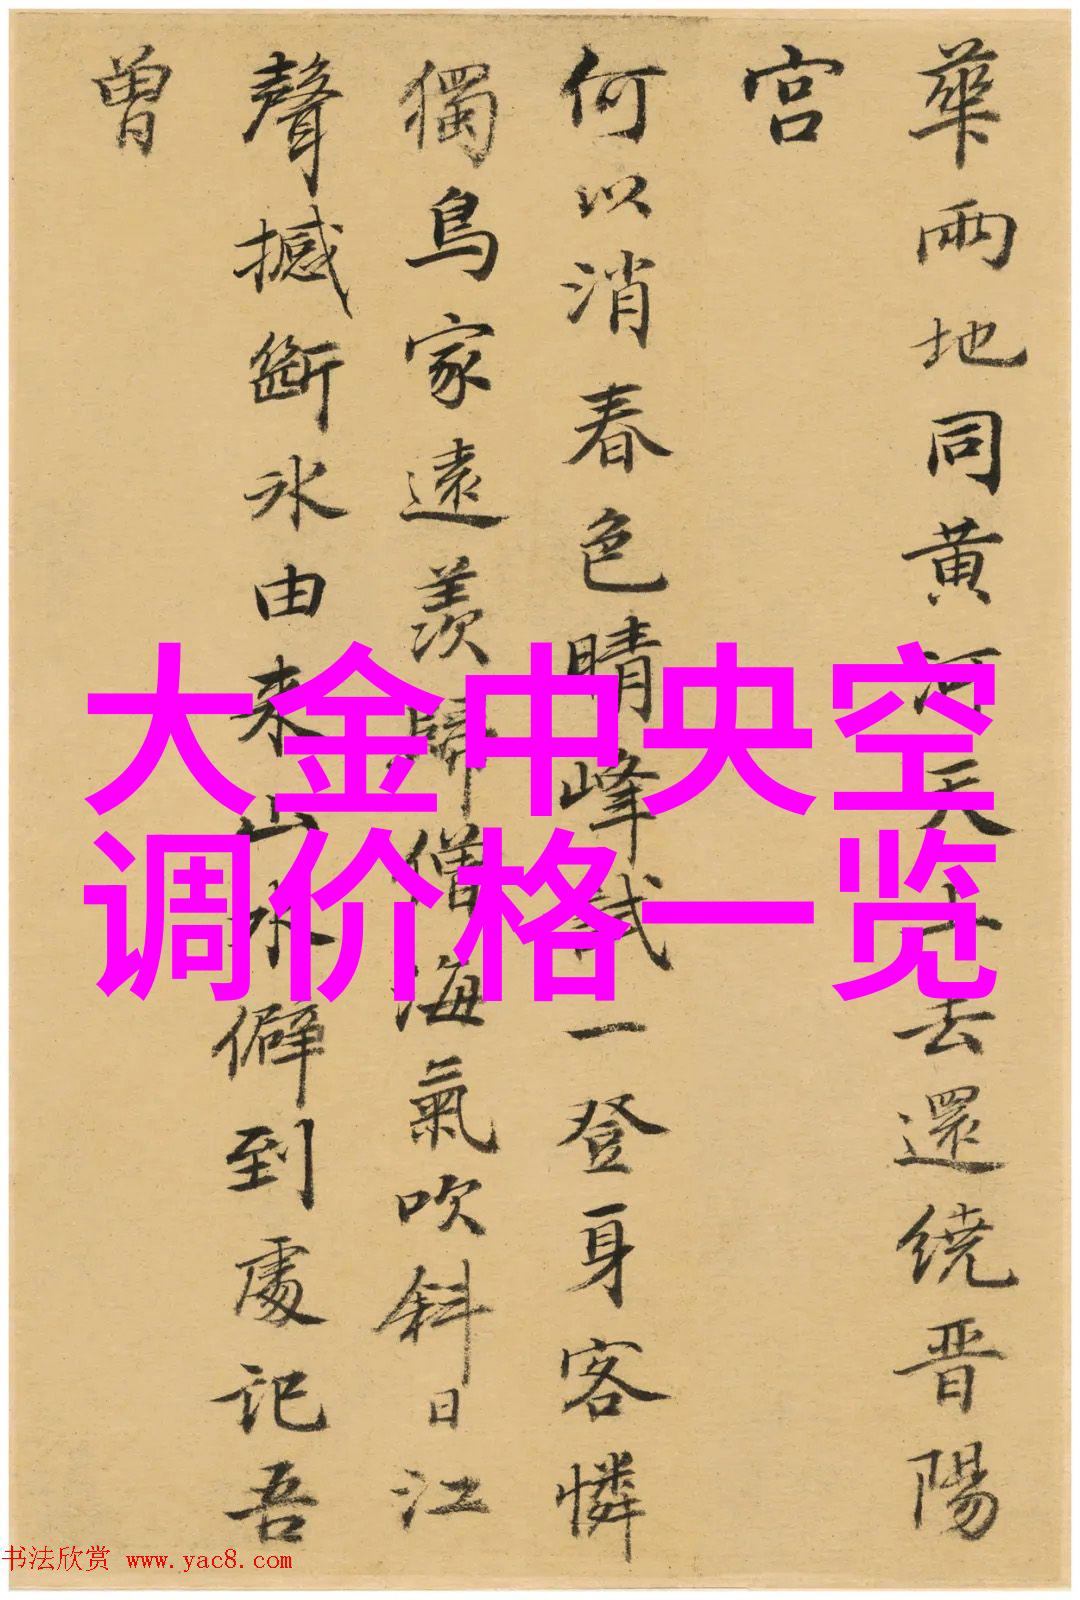 華兩地同黄河天上去還繞晋陽
宫
何以消春色晴峰試一登身客憐
獨鳥家遠羨歸僧海氣吹斜日江
聲撼斷冰由来山水僻到處記吾
曾
大金中央空
调价格一览
书法欣赏 www.yac8.com